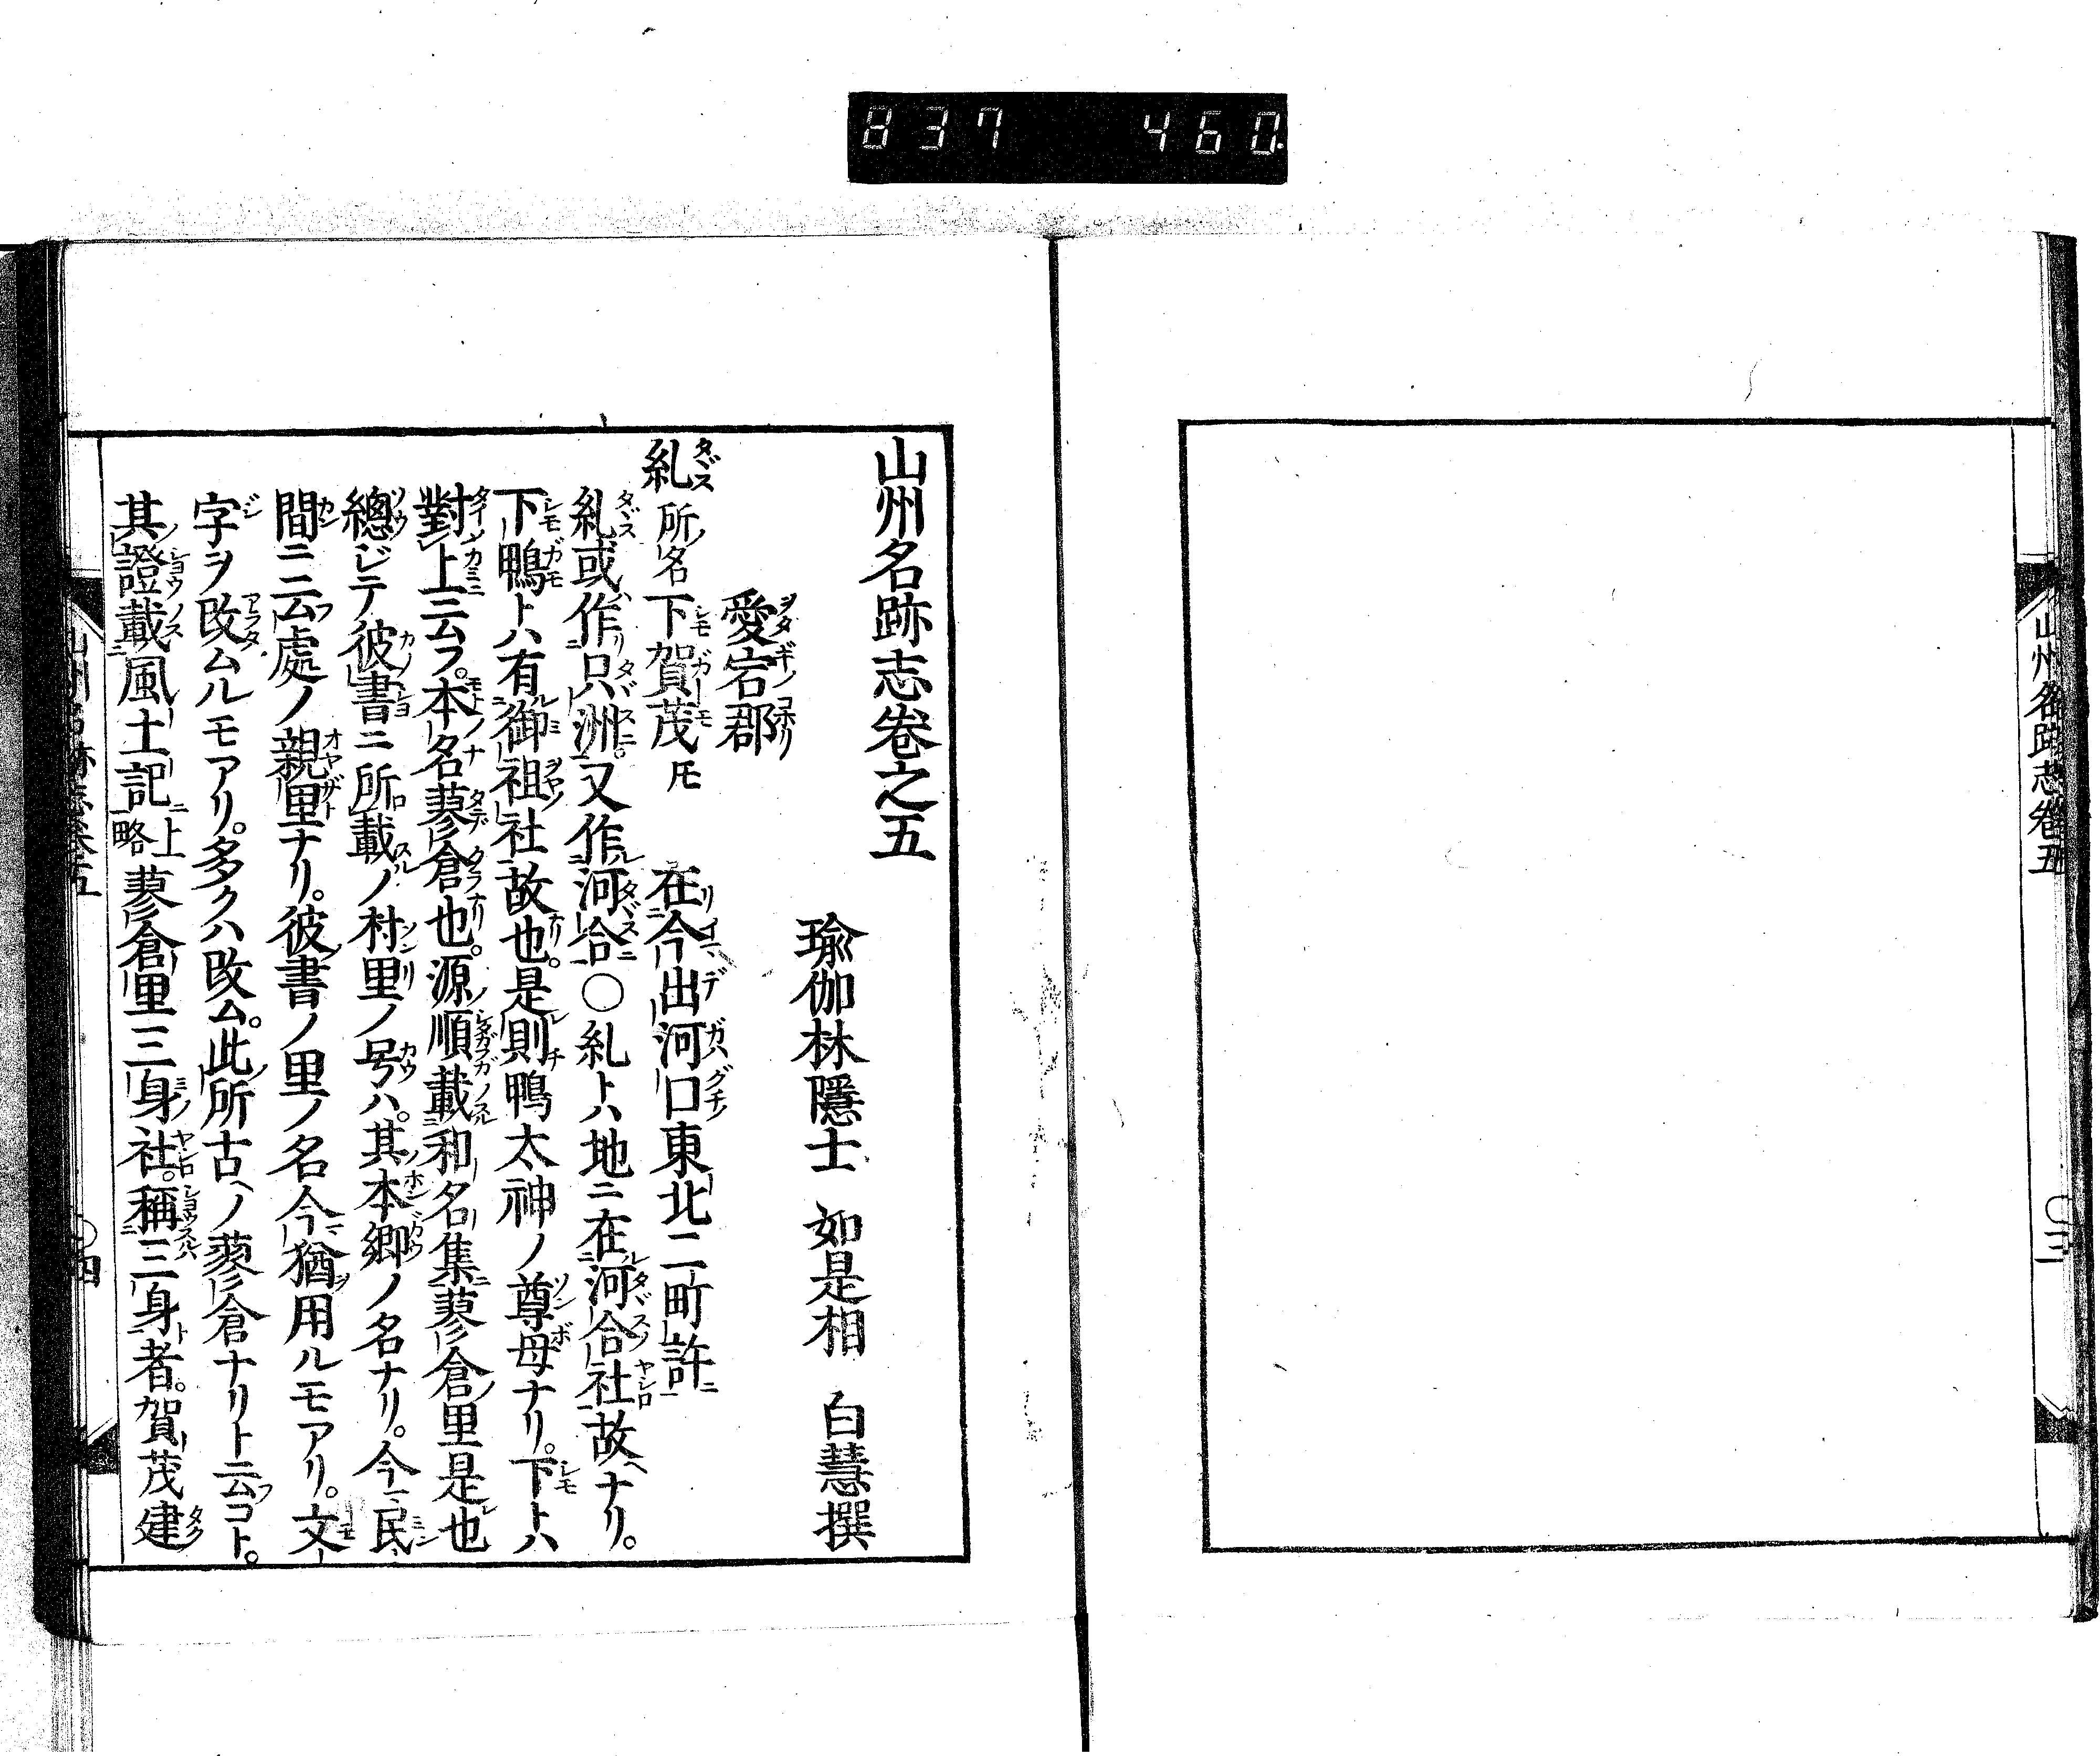 837 460.
山州名跡志卷五
〇三
山州名跡志卷之五
瑜伽林隱士 如是相 白慧撰
愛宕郡
糺 所名下賀茂𪜈 在今出河口東北二町許
糺或作只洲。又作河合〇糺トハ地ニ在河合社故ナリ。
下鴨トハ有御祖社故也。是則鴨太神ノ尊母ナリ。下トハ
對上云フ。本名蓼倉也。源順載和名集蓼倉里是也
總ジテ彼書ニ所載ノ村里ノ号ハ。其本鄉ノ名ナリ。今民
間ニ云處ノ親里ナリ。彼書ノ里ノ名今猶用ルモアリ。文
字ヲ改ムルモアリ。多クハ改ム。此所古ヘノ蓼倉ナリト云フコト。
其證載風土記上略蓼倉里三身社。稱三身者。賀茂建